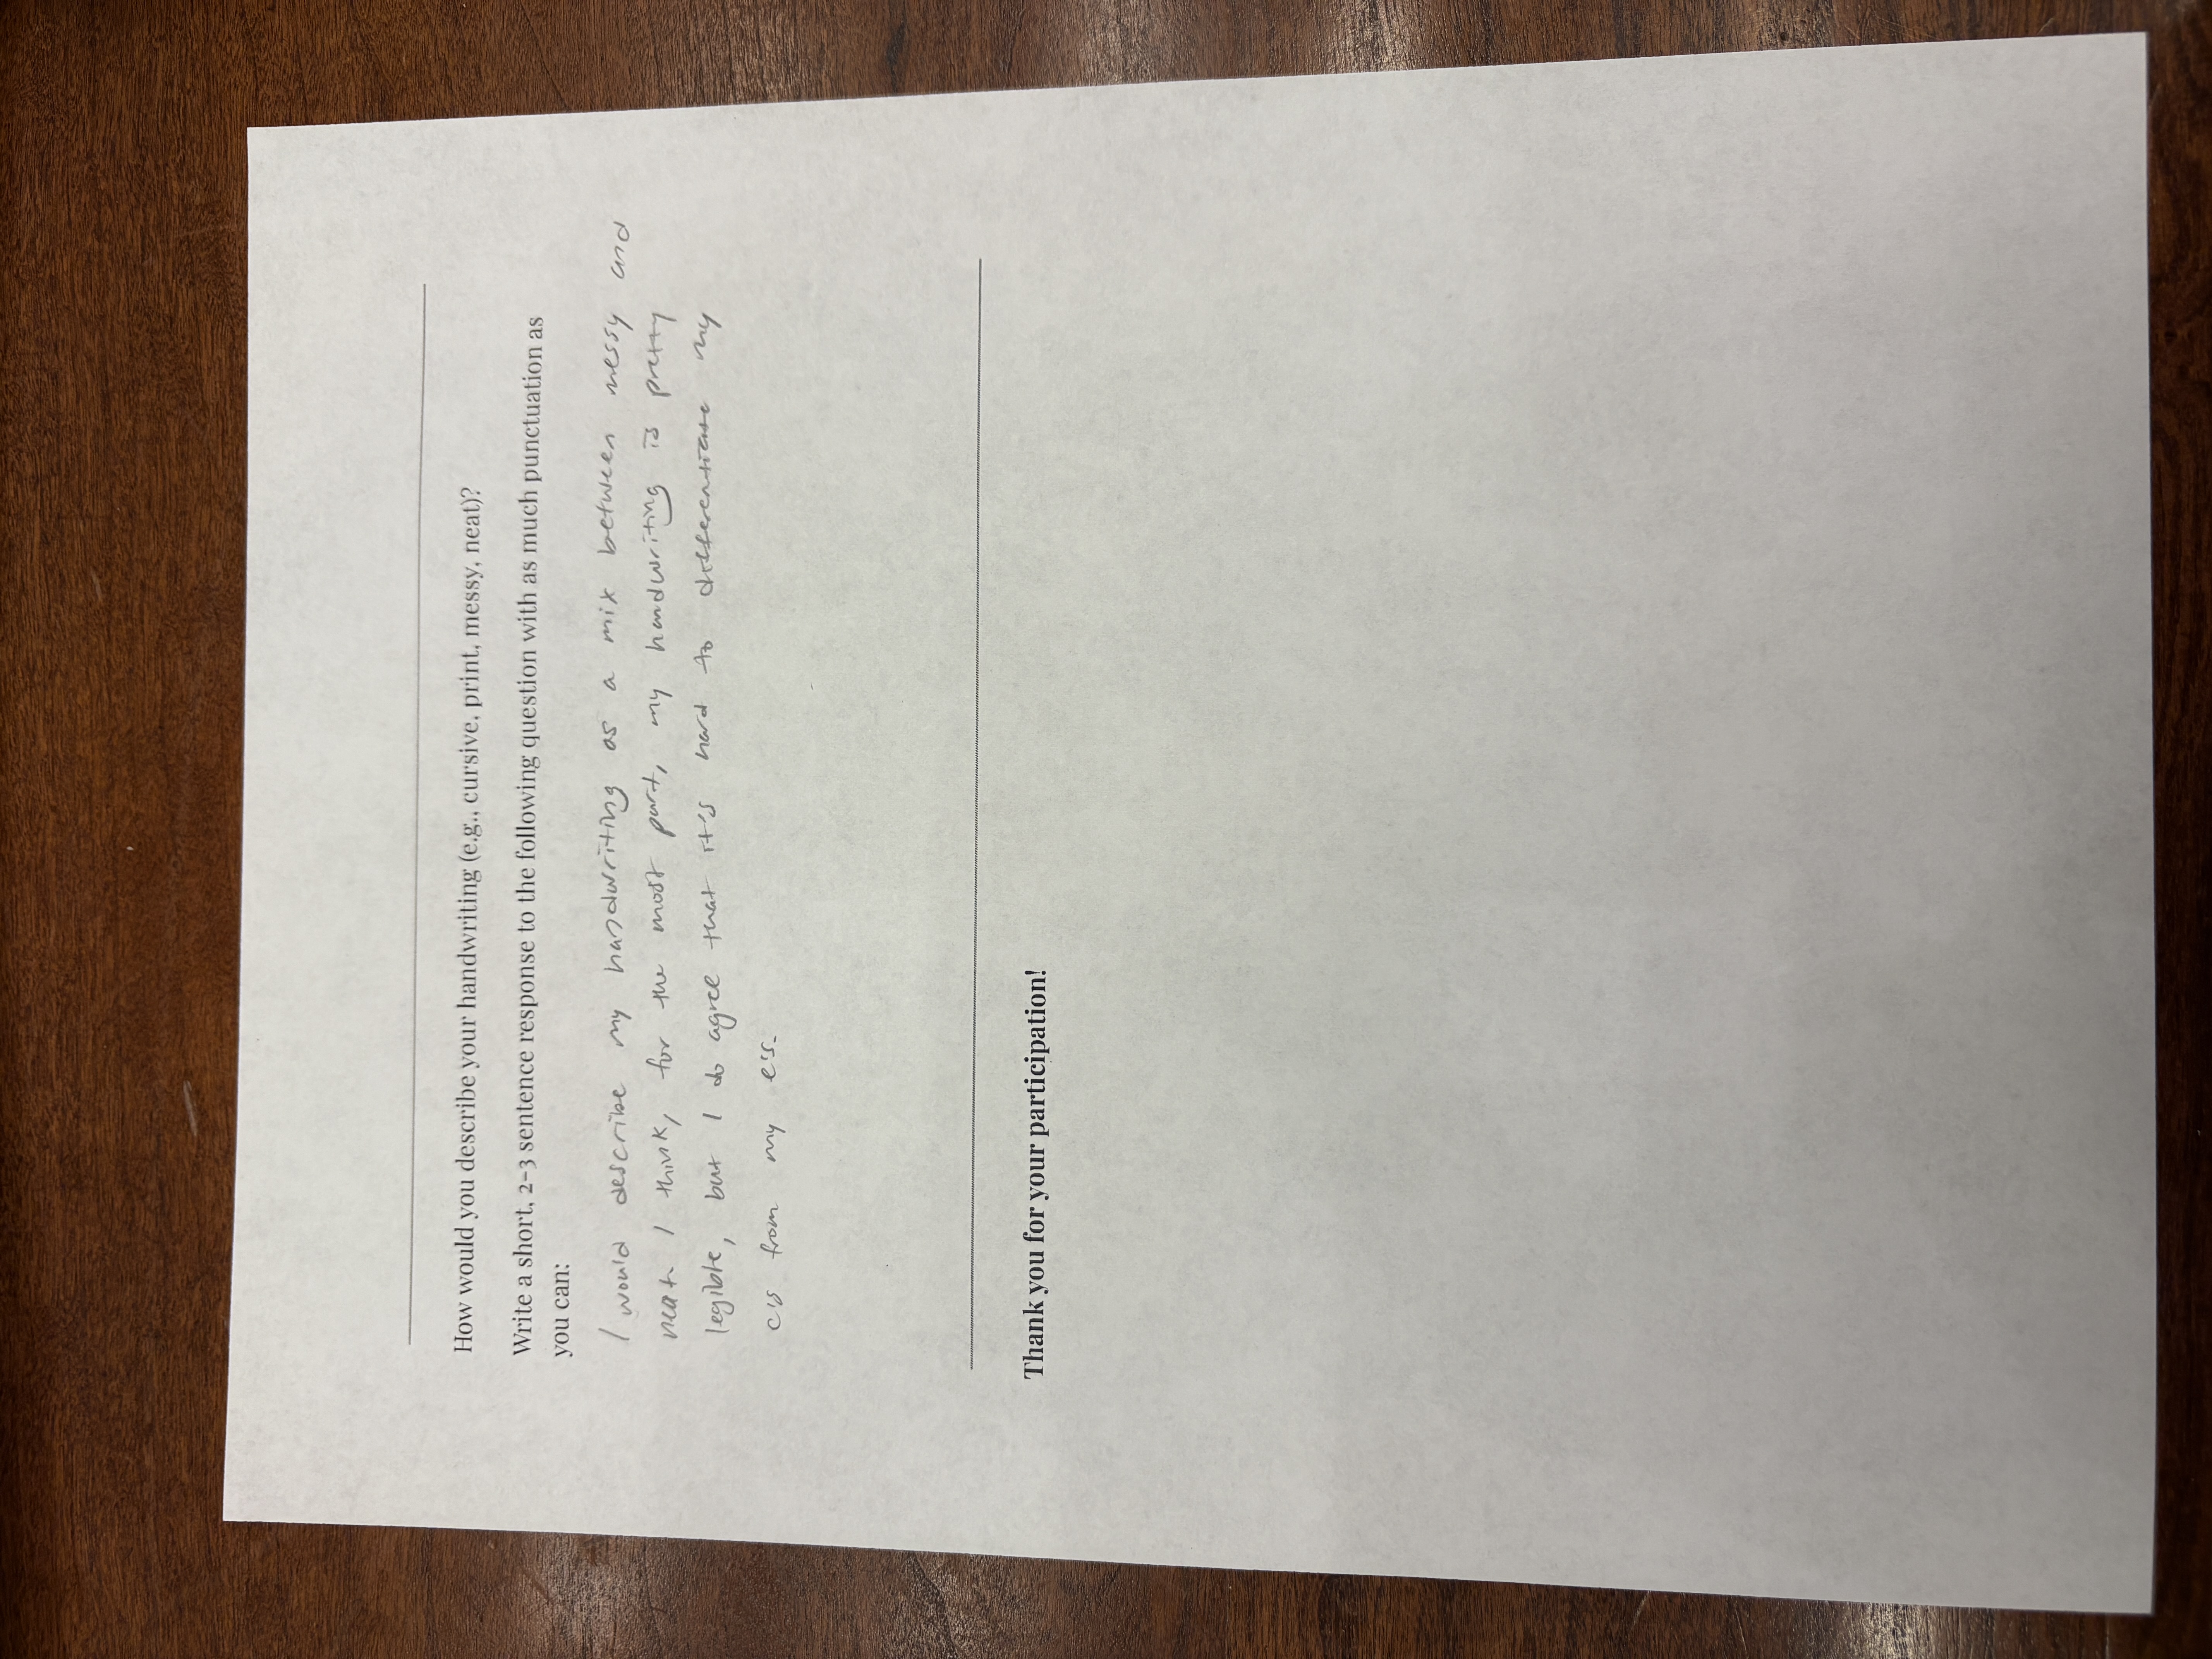 How would you describe your handwriting (e.g., cursive, print, messy, neat)?
Write a short, 2-3 sentence response to the following question with as much punctuation as
you can:
I would describe my handwriting as a mix between messy and
neat. I think, for the most part, my handwriting is pretty
legible, but I do agree that it's hard to differentiate my
c's from my e's.
Thank you for your participation!